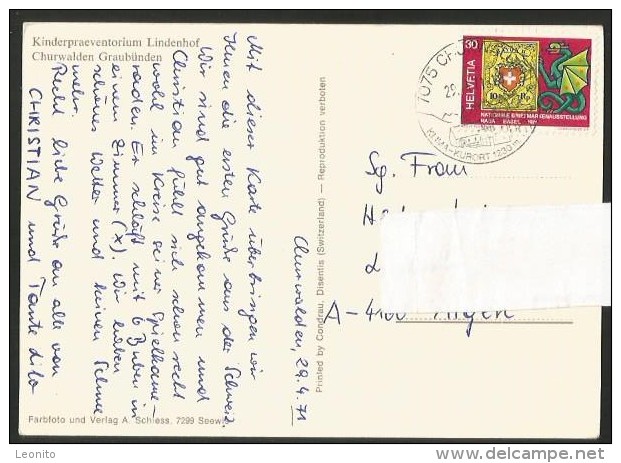 Kinderpraeventorium Lindenhof
Churwalden Graubünden
Mit dieser Karte überbringen wir
Ihnen die ersten Grüße aus der Schweiz.
Wir sind gut angekommen und
Christian fühlt sich schon recht
wohl im Kreise seiner Spielkame-
raden. Er schläft mit 6 Buben in
einem Zimmer (x). Wir haben
schönes Wetter und keinen Schnee
mehr.
Recht liebe Grüße an alle von
CHRISTIAN und Tante Lilo
Farbfoto und Verlag A. Schiess, 7299 Seewis
Printed by Condrau, Disentis (Switzerland) — Reproduktion verboten
Churwalden, 29.4.71
7075
KLIMA-KURORT
30
HELVETIA
10 Rp.
NATIONALE BRIEFMARKENAUSSTELLUNG
NABA BASEL 1971
Sg. Frau
A-4100
Delcampe.net
Leonito